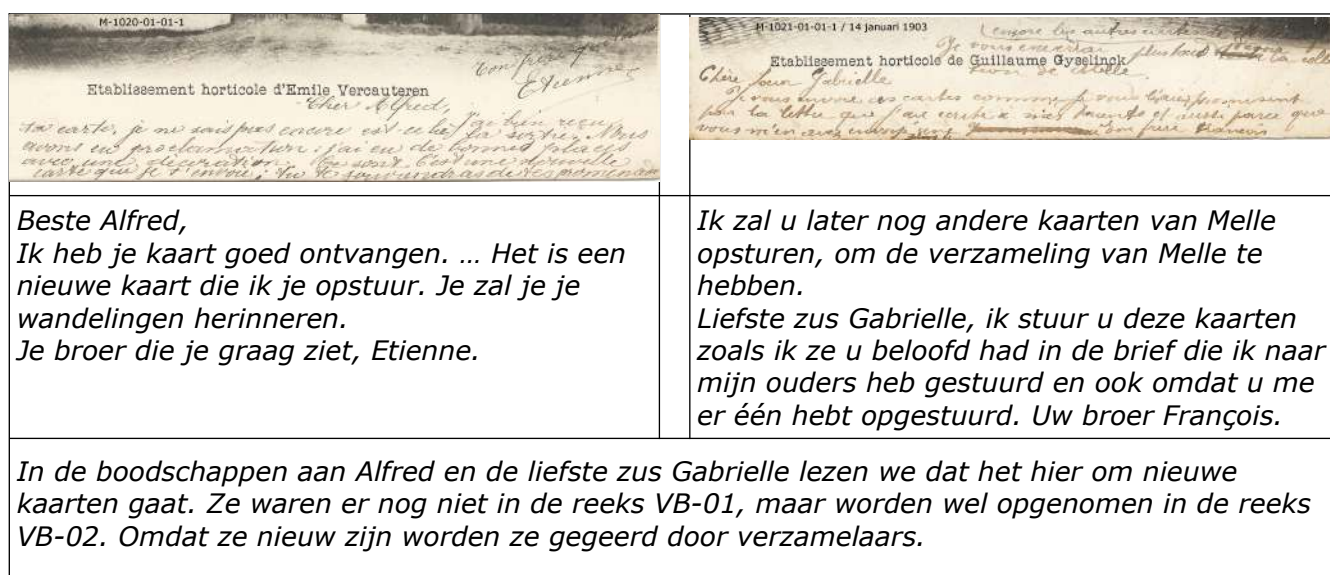 M-1020-01-01-1
Ton frère qui t'aime
Etienne
Etablissement horticole d'Emile Vercauteren
Cher Alfred,
J'ai bien reçu
ta carte, je ne sais pas encore est-ce la sortie. Nous
avons eu proclamation; j'ai eu de bonnes places
avec une décoration. C'est une nouvelle
carte que je t'envoie; tu te souviendras de tes promenades
M-1021-01-01-1 / 14 januari 1903
encore les autres cartes de
Je vous enverrai plus tard la coll
Etablissement horticole de Guillaume Gyselinck
tion de Melle
Chère Soeur Gabrielle
Je vous envoie ces cartes comme je vous l'avais
pour la lettre que j'ai écrite à mes parents et aussi parce que
vous m'en avez envoyé une frère François
Beste Alfred,
Ik heb je kaart goed ontvangen. … Het is een
nieuwe kaart die ik je opstuur. Je zal je je
wandelingen herinneren.
Je broer die je graag ziet, Etienne.
Ik zal u later nog andere kaarten van Melle
opsturen, om de verzameling van Melle te
hebben.
Liefste zus Gabrielle, ik stuur u deze kaarten
zoals ik ze u beloofd had in de brief die ik naar
mijn ouders heb gestuurd en ook omdat u me
er één hebt opgestuurd. Uw broer François.
In de boodschappen aan Alfred en de liefste zus Gabrielle lezen we dat het hier om nieuwe
kaarten gaat. Ze waren er nog niet in de reeks VB-01, maar worden wel opgenomen in de reeks
VB-02. Omdat ze nieuw zijn worden ze gegeerd door verzamelaars.